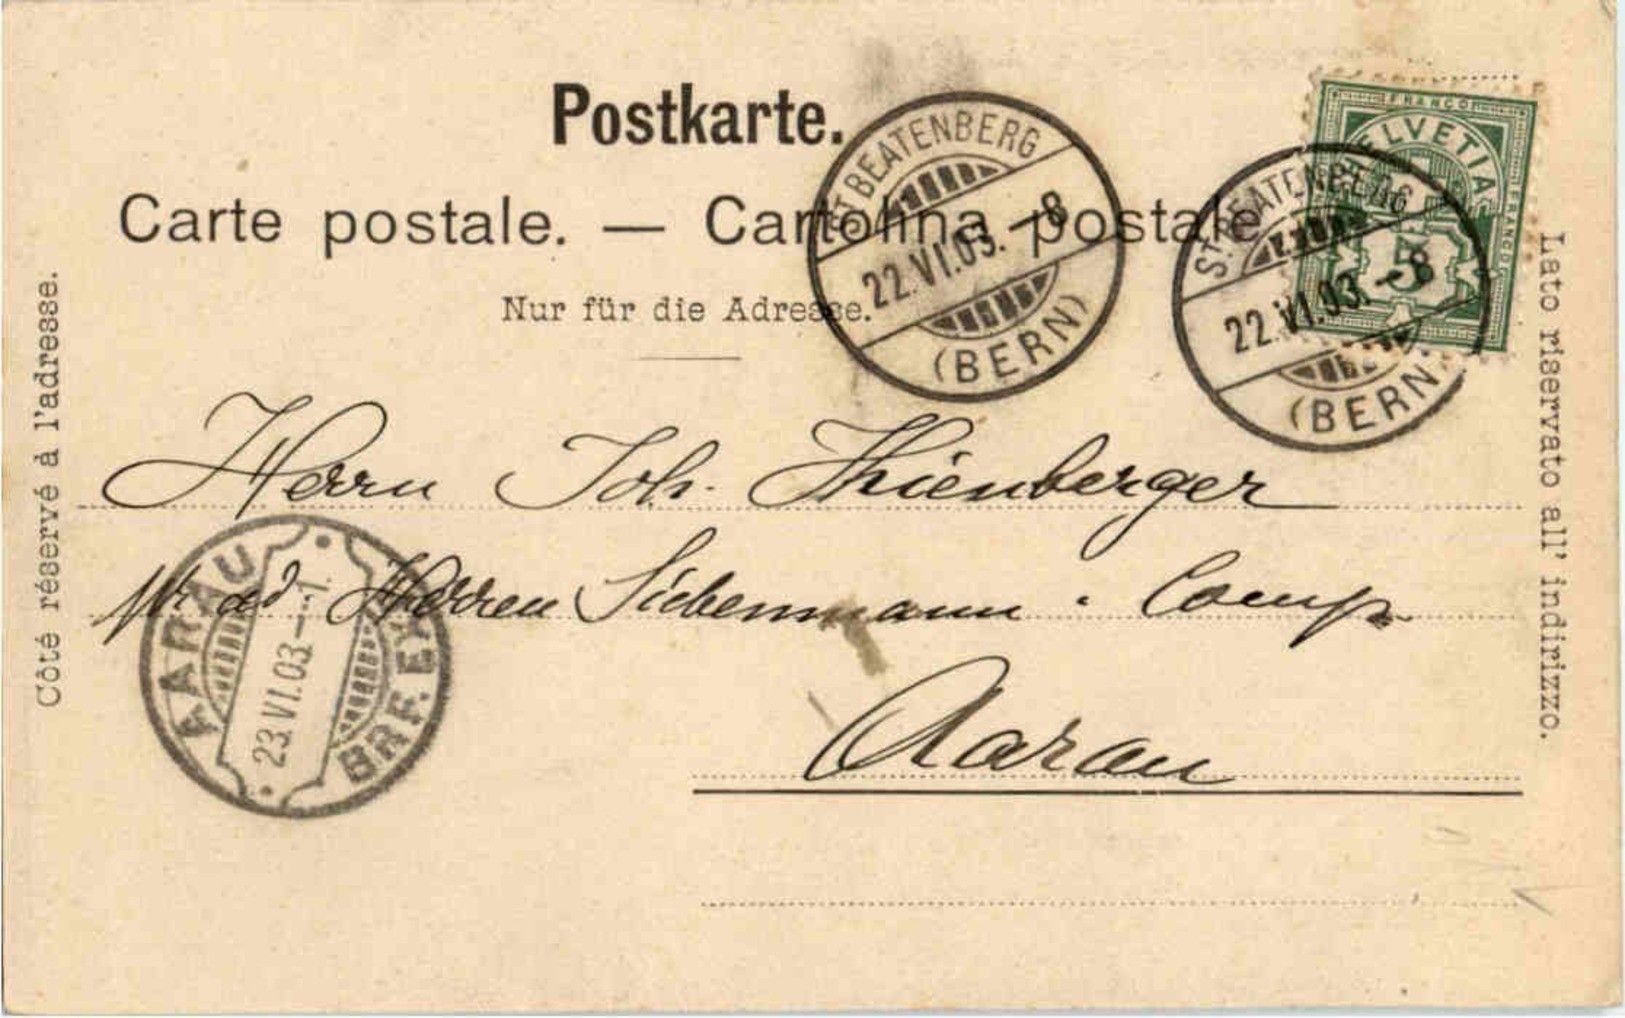 Postkarte.
Carte postale. — Cartolina postale.
Nur für die Adresse.
Côté réservé à l'adresse.
Lato riservato all' indirizzo.
ST BEATENBERG
22.VI.03.–8
(BERN)
ST BEATENBERG
22.VI.03.–8
(BERN)
FRANCO
HELVETIA
FRANCO
5
Herrn Joh. Thienberger
ad Herren Siebenmann . Comp
Aarau
AARAU
23.VI.03.–1.
BRF. EXP.